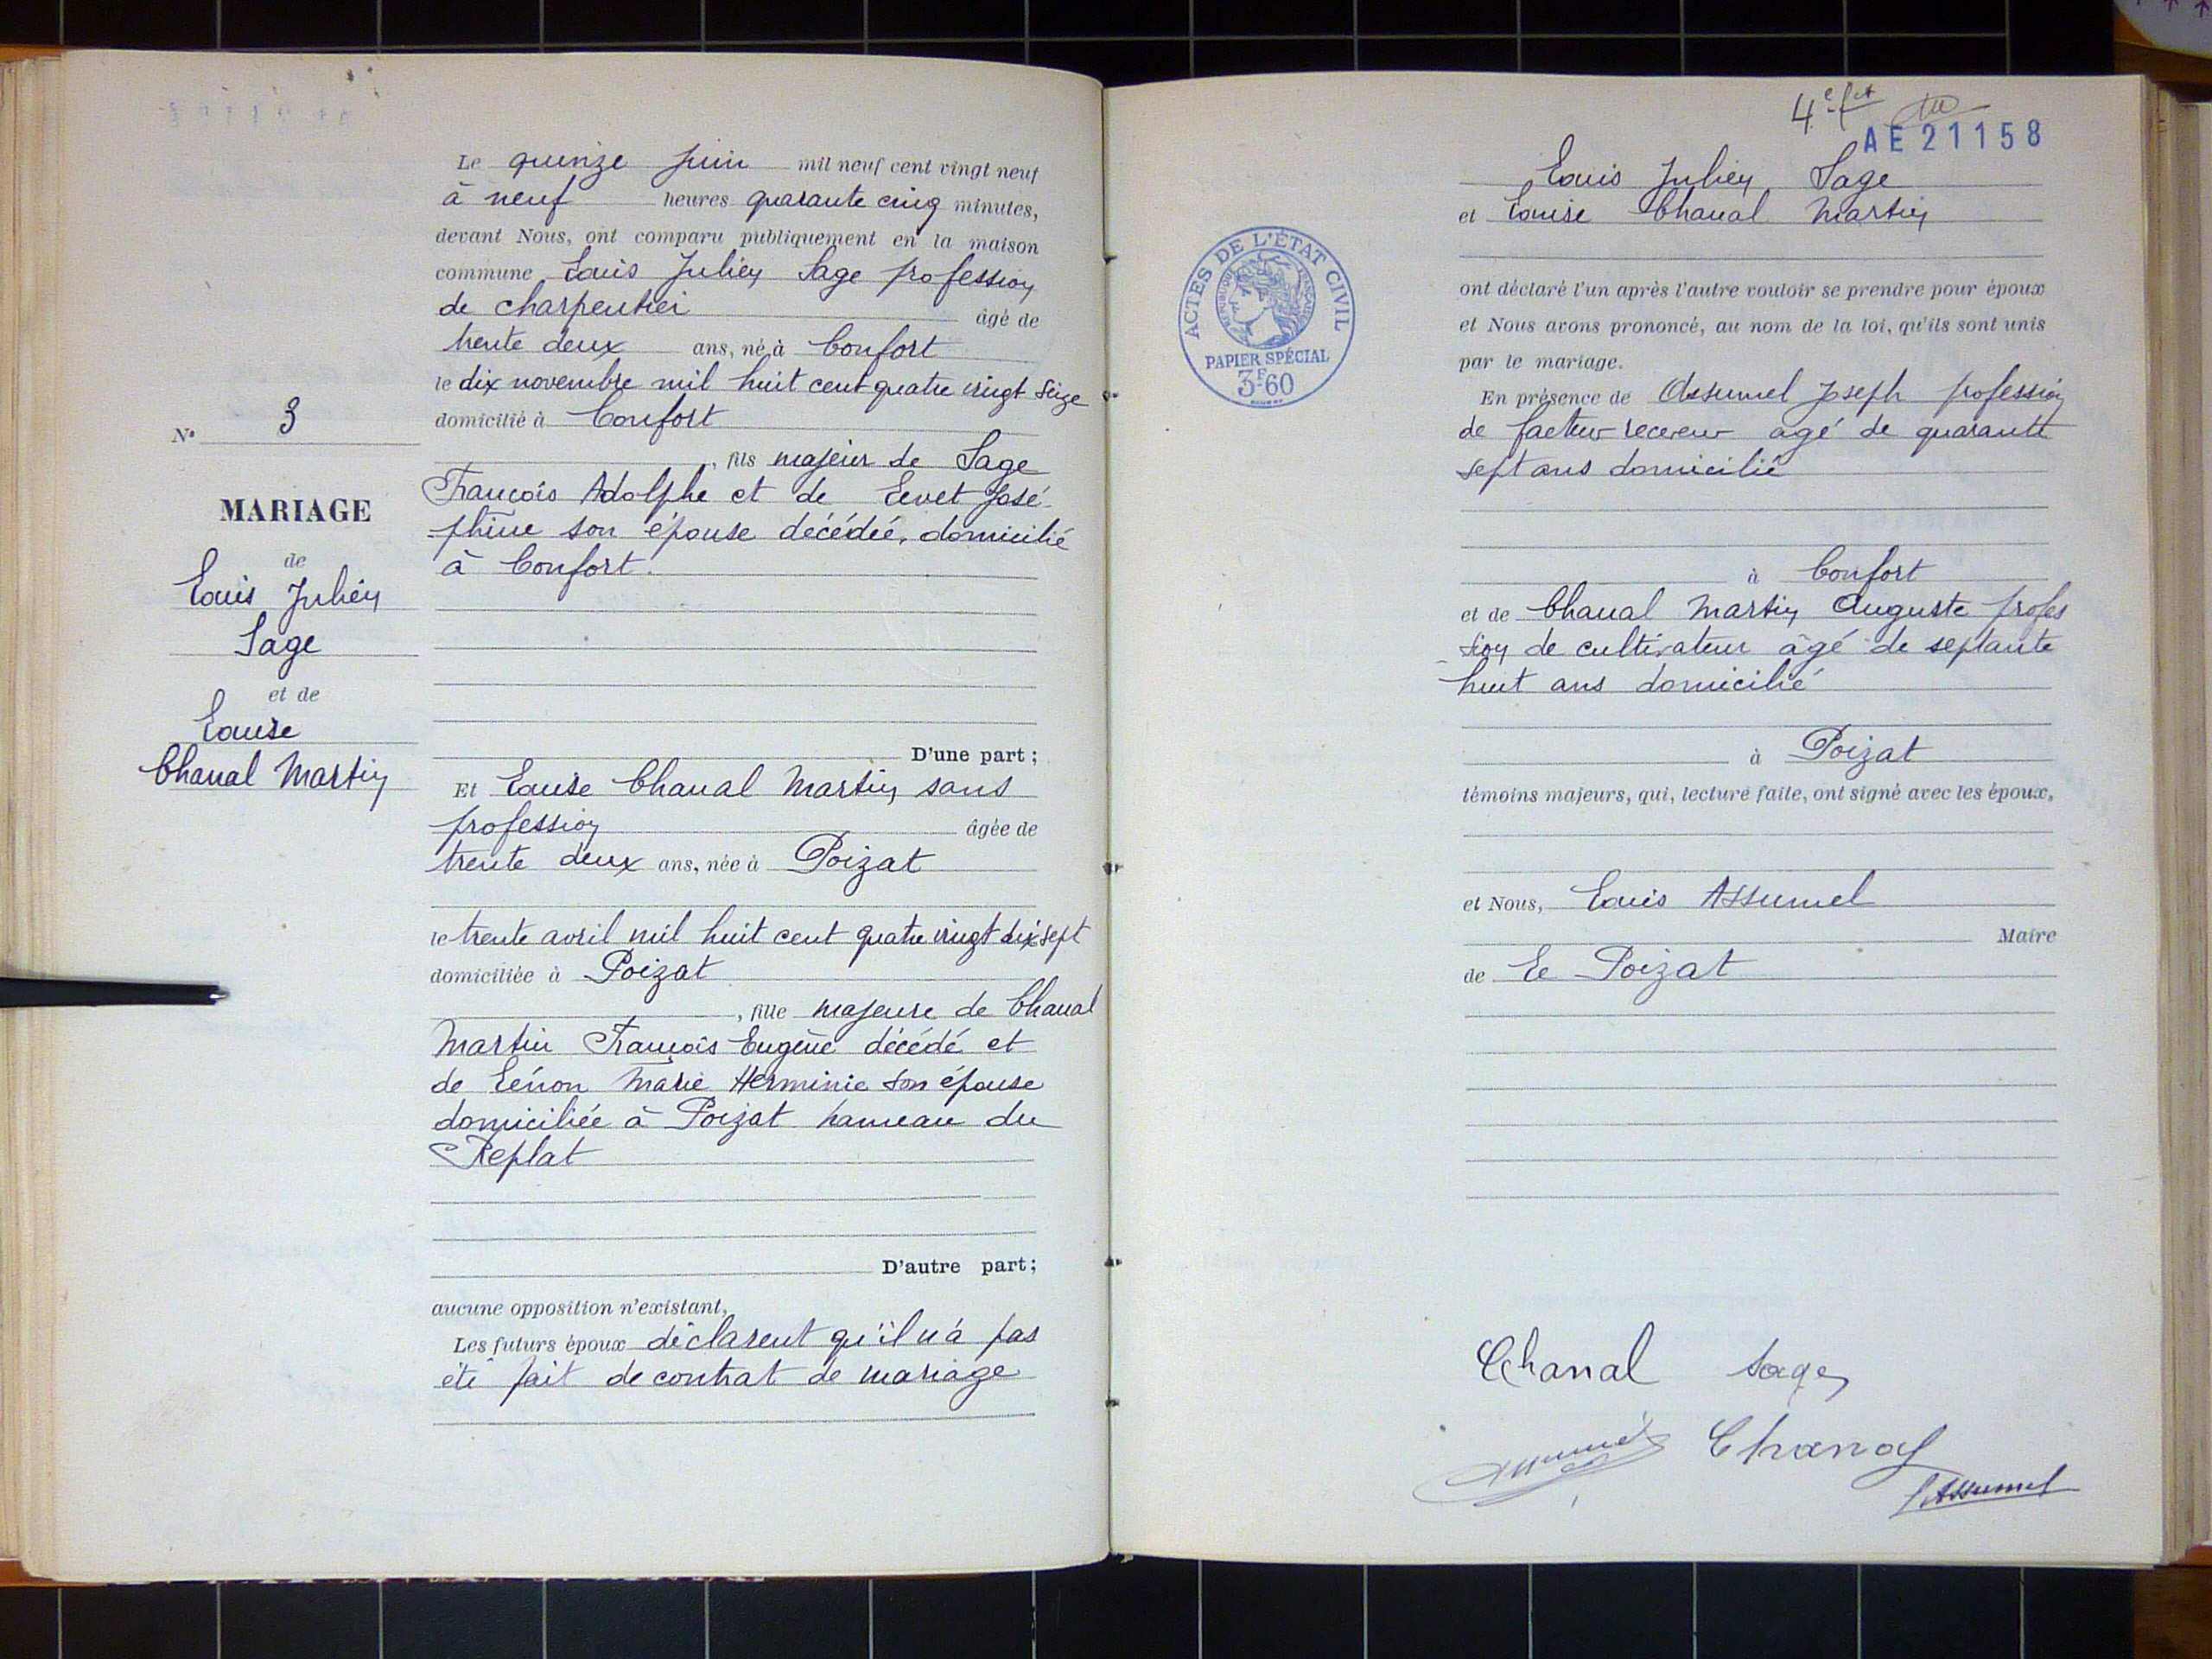 Le quinze juin mil neuf cent vingt neuf
à neuf heures quarante cinq minutes,
devant Nous, ont comparu publiquement en la maison
commune Louis Julien Sage profession
de charpentier âgé de
trente deux ans, né à Confort
le dix novembre mil huit cent quatre vingt seize
N° 3
domicilié à Confort
, fils majeur de Sage
François Adolphe et de Levet José-
phine son épouse décédée, domicilié
à Confort.
MARIAGE
de
Louis Julien
Sage
et de
Louise
Chanal Martin
D'une part ;
Et Louise Chanal Martin sans
profession âgée de
trente deux ans, née à Poizat
le trente avril mil huit cent quatre vingt dix sept
domiciliée à Poizat
, fille majeure de Chanal
Martin François Eugène décédé et
de Lénon Marie Herminie son épouse
domiciliée à Poizat hameau du
Replat
D'autre part ;
aucune opposition n'existant,
Les futurs époux déclarent qu'il n'a pas
été fait de contrat de mariage
4e
AE21158
Louis Julien Sage
et Louise Chanal Martin
ACTES DE L'ÉTAT CIVIL
RÉPUBLIQUE FRANÇAISE
PAPIER SPÉCIAL
3F60
ont déclaré l'un après l'autre vouloir se prendre pour époux
et Nous avons prononcé, au nom de la loi, qu'ils sont unis
par le mariage.
En présence de Assumel Joseph profession
de facteur receveur agé de quarante
sept ans domicilié
à Confort
et de Chanal Martin Auguste profes
sion de cultivateur âgé de septante
huit ans domicilié
à Poizat
témoins majeurs, qui, lecture faite, ont signé avec les époux,
et Nous, Louis Assumel
Maire
de Le Poizat
Chanal Sage
Chanal
Assumel